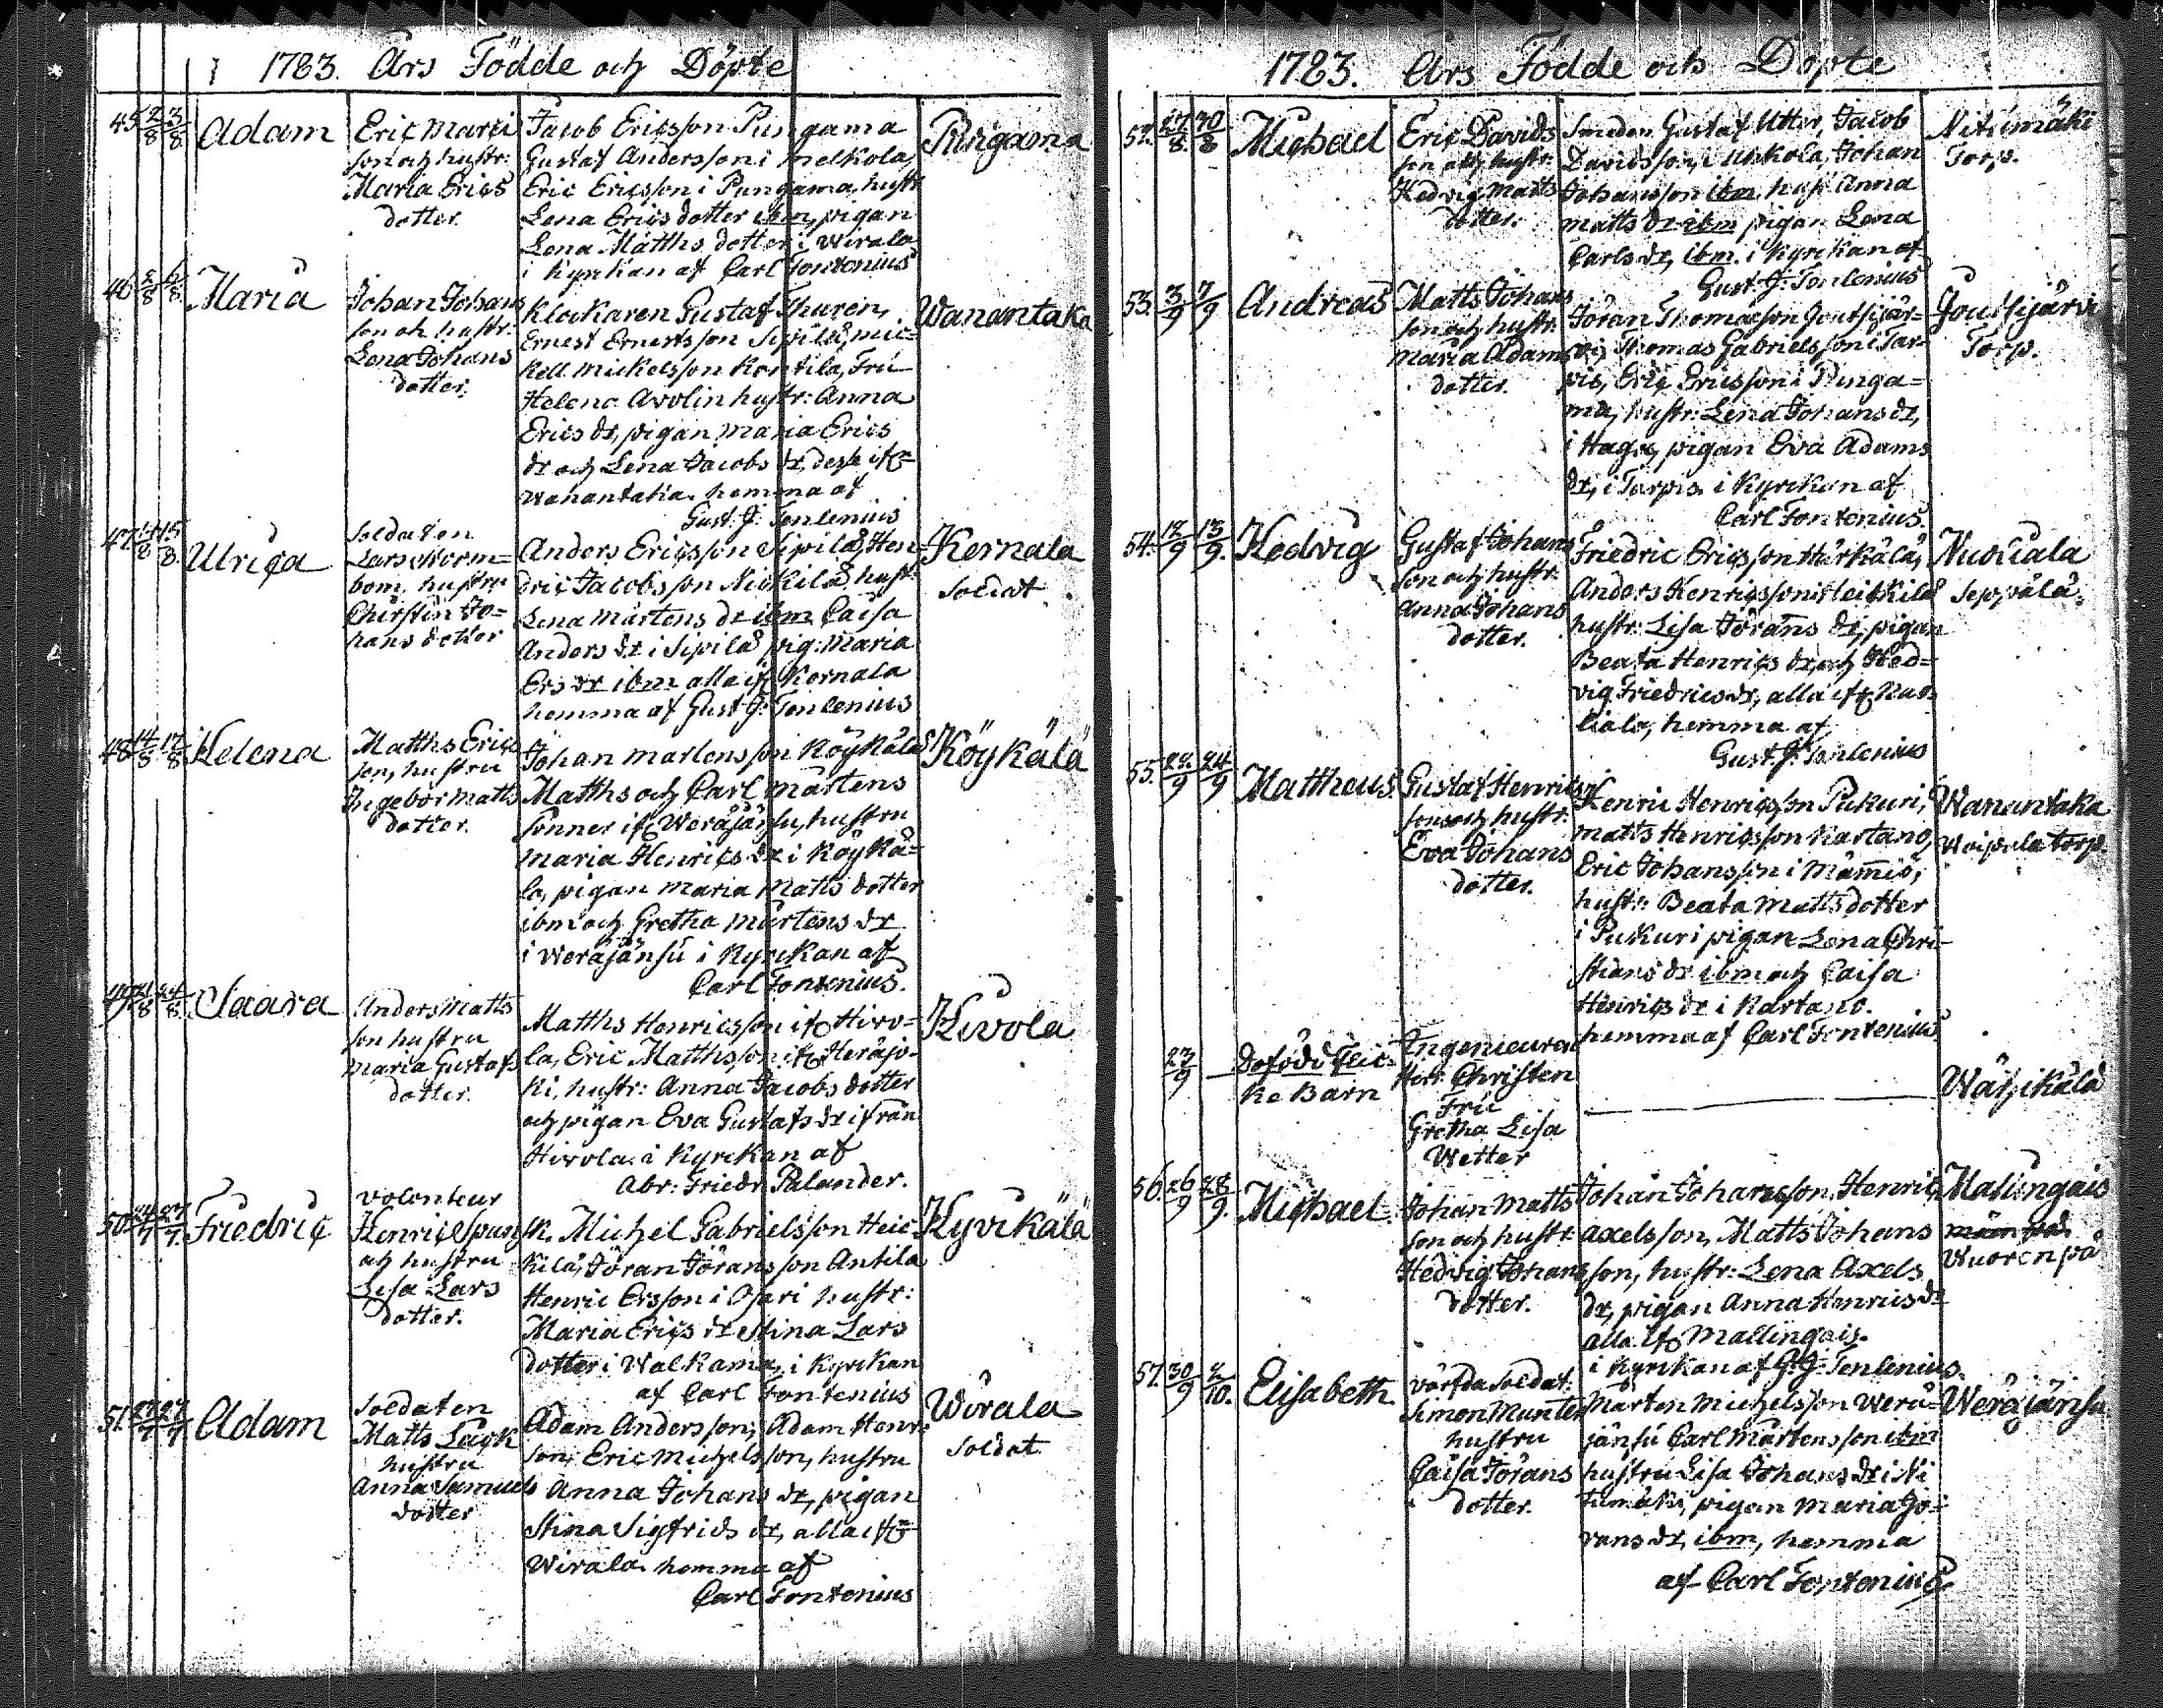 1783. Års Födde och Döpte
45 2/8 3/8 Adam
Eric Matts
son och hustr:
Maria Erics
dotter.
Jacob Ericsson Pungama
Gustaf Andersson i Melkola,
Eric Ericsson i Pungama, hustr
Lena Erics dotter ibm, pigan
Lena Matths dotter i Wirala
i Kyrckan af Carl Fontenius
Pungama
46 Maria
Johan Johans
son och hustr:
Lena Johans
dotter.
Klockaren Gustaf Thuren,
Ernest Ernestsson Sipilä, Mic=
kell Mickelsson Kontila, Fru
Helena Avolin hustr: Anna
Erics dr, pigan Maria Erics
dr och Lena Jacobs dr, desse ifr
Wanantaka hemma af
Gust. J: Tenlenius
Wanantaka
47 14/8 15/8. Ulrica
Soldaten
Lars Norm=
bom, hustru
Christin Jo=
hans dotter
Anders Ericsson Sipilä, Hen=
dric Jacobsson Nickilä hustr:
Lena Mårtens dr ibm Caisa
Anders dr i Sipilä, pig: Maria
Ers dr ibm alla if. Kernala
hemma af Gust J: Tenlenius
Kernala
Soldat
48 14/8 17/8 Helena
Matths Erics
son, hustru
Ingebor Matts
dotter.
Johan Mårtensson Köykälä
Matths och Carl Mårtens
Sönner ifr Weräjänsu, hustru
Maria Henrics dr i Köykä=
lä, pigan Maria Matts dotter
ibm och Gretha Mårtens dr
i Weräjänsu i Kyrckan af
Carl Fontenius.
Köykälä
49 21/8 24/8. Saara
Anders Matts
son hustru
Maria Gustafs
dotter.
Matths Henricsson ifr Hirvo=
la, Eric Matthsson ifr Heräjo=
ki, hustr: Anna Jacobs dotter
och pigan Eva Gustafs dr ifrån
Hirvola i Kyrckan af
Abr: Friedr Palander.
Hirvola
50 Friedric
Volonteur
Henric Spung
och hustru
Lisa Lars
dotter.
k. Michel Gabrielsson Heic=
kilä, Jöran Jöransson Antila
Henric Ersson i Ojari hustr:
Maria Erics dr Stina Lars
dotter i Walkama, i Kyrckan
af Carl Fontenius
Hyvikälä
51. Adam
Soldaten
Matts Lack
hustru
Anna Samuels
dotter
Adam Andersson, Adam Henr=
son, Eric Michelsson, hustru
Anna Johans dr, pigan
Stina Sigfrids dr, alla ifr
Wirala hemma af
Carl Fontenius
Wirala
Soldat
1783. Års Födde och Döpte
52. 27/8 30/8 Michael
Eric Davids
son och hustr:
Hedvig Matts
dotter.
Smeden Gustaf Utter, Jacob
Davidsson, i Uhkola, Johan
Johansson ibm hust. Anna
Matts dr ibm pigan Lena
Carls dr, ibm. i Kyrckan af
Gust. J: Tenlenius
Nitumäki
Torp.
53. 3/9 7/9 Andreas
Matts Johans
son och hustr.
Maria Adams
dotter.
Jöran Thomasson Joutsijär=
vi, Thomas Gabrielsson i Tar=
pis, Eric Ericsson i Punga=
ma, hustr: Lena Johans dr,
i Haga, pigan Eva Adams
dr, i Tarpis i Kyrckan af
Carl Fontenius.
Joutsijärvi
Torp.
54. 12/9 13/9. Hedvig
Gustaf Johans
son och hustr:
Anna Johans
dotter.
Friedric Ericsson Härkälä,
Anders Henricsson i Heickilä
hustr: Lisa Jörans dr, pigan
Beata Henrics dr, och Hed=
vig Friedrics dr, alla ifr Nus=
tiala, hemma af
Gust. J: Tenlenius
Nustiala
Seppälä.
55. 22/9 24/9 Mattheus.
Gustaf Henrics
son och hustr:
Eva Johans
dotter.
Henric Henricsson Pukuri,
Matts Henricsson Kartano,
Eric Johansson i Mämmiö,
hustr: Beata Matts dotter
i Pukuri pigan Lena Chri=
stians dr ibm och Caisa
Henrics dr i Kartano.
hemma af Carl Fontenius
Wanantaka
Woipala torp.
23/9 Dödfödt Flic=
ka Barn
Ingenieuren
Herr Christen
Fru
Gretha Lisa
Wetter
Wähikälä
56. 26/9 28/9. Michael.
Johan Matts
son och hustr:
Hedvig Johans
dotter.
Johan Johansson, Henric
Axelsson, Matts Johans
son, hustr: Lena Axels
dr, pigan Anna Henrics dr
alla ifr Mallingais.
i Kyrckan af G. J: Tenlenius.
Mallingais
Wuorenpä
57. 30/9 2/10. Elisabeth
värfda Soldat.
Simon Munter
hustru
Caisa Jörans
dotter.
Mårten Michelsson Werä=
jänsu Carl Mårtensson ibm
hustru Lisa Johans dr i Ni
tumäki, pigan Maria Jö=
rans dr, ibm, hemma
af Carl Fontenius.
Weräjänsu